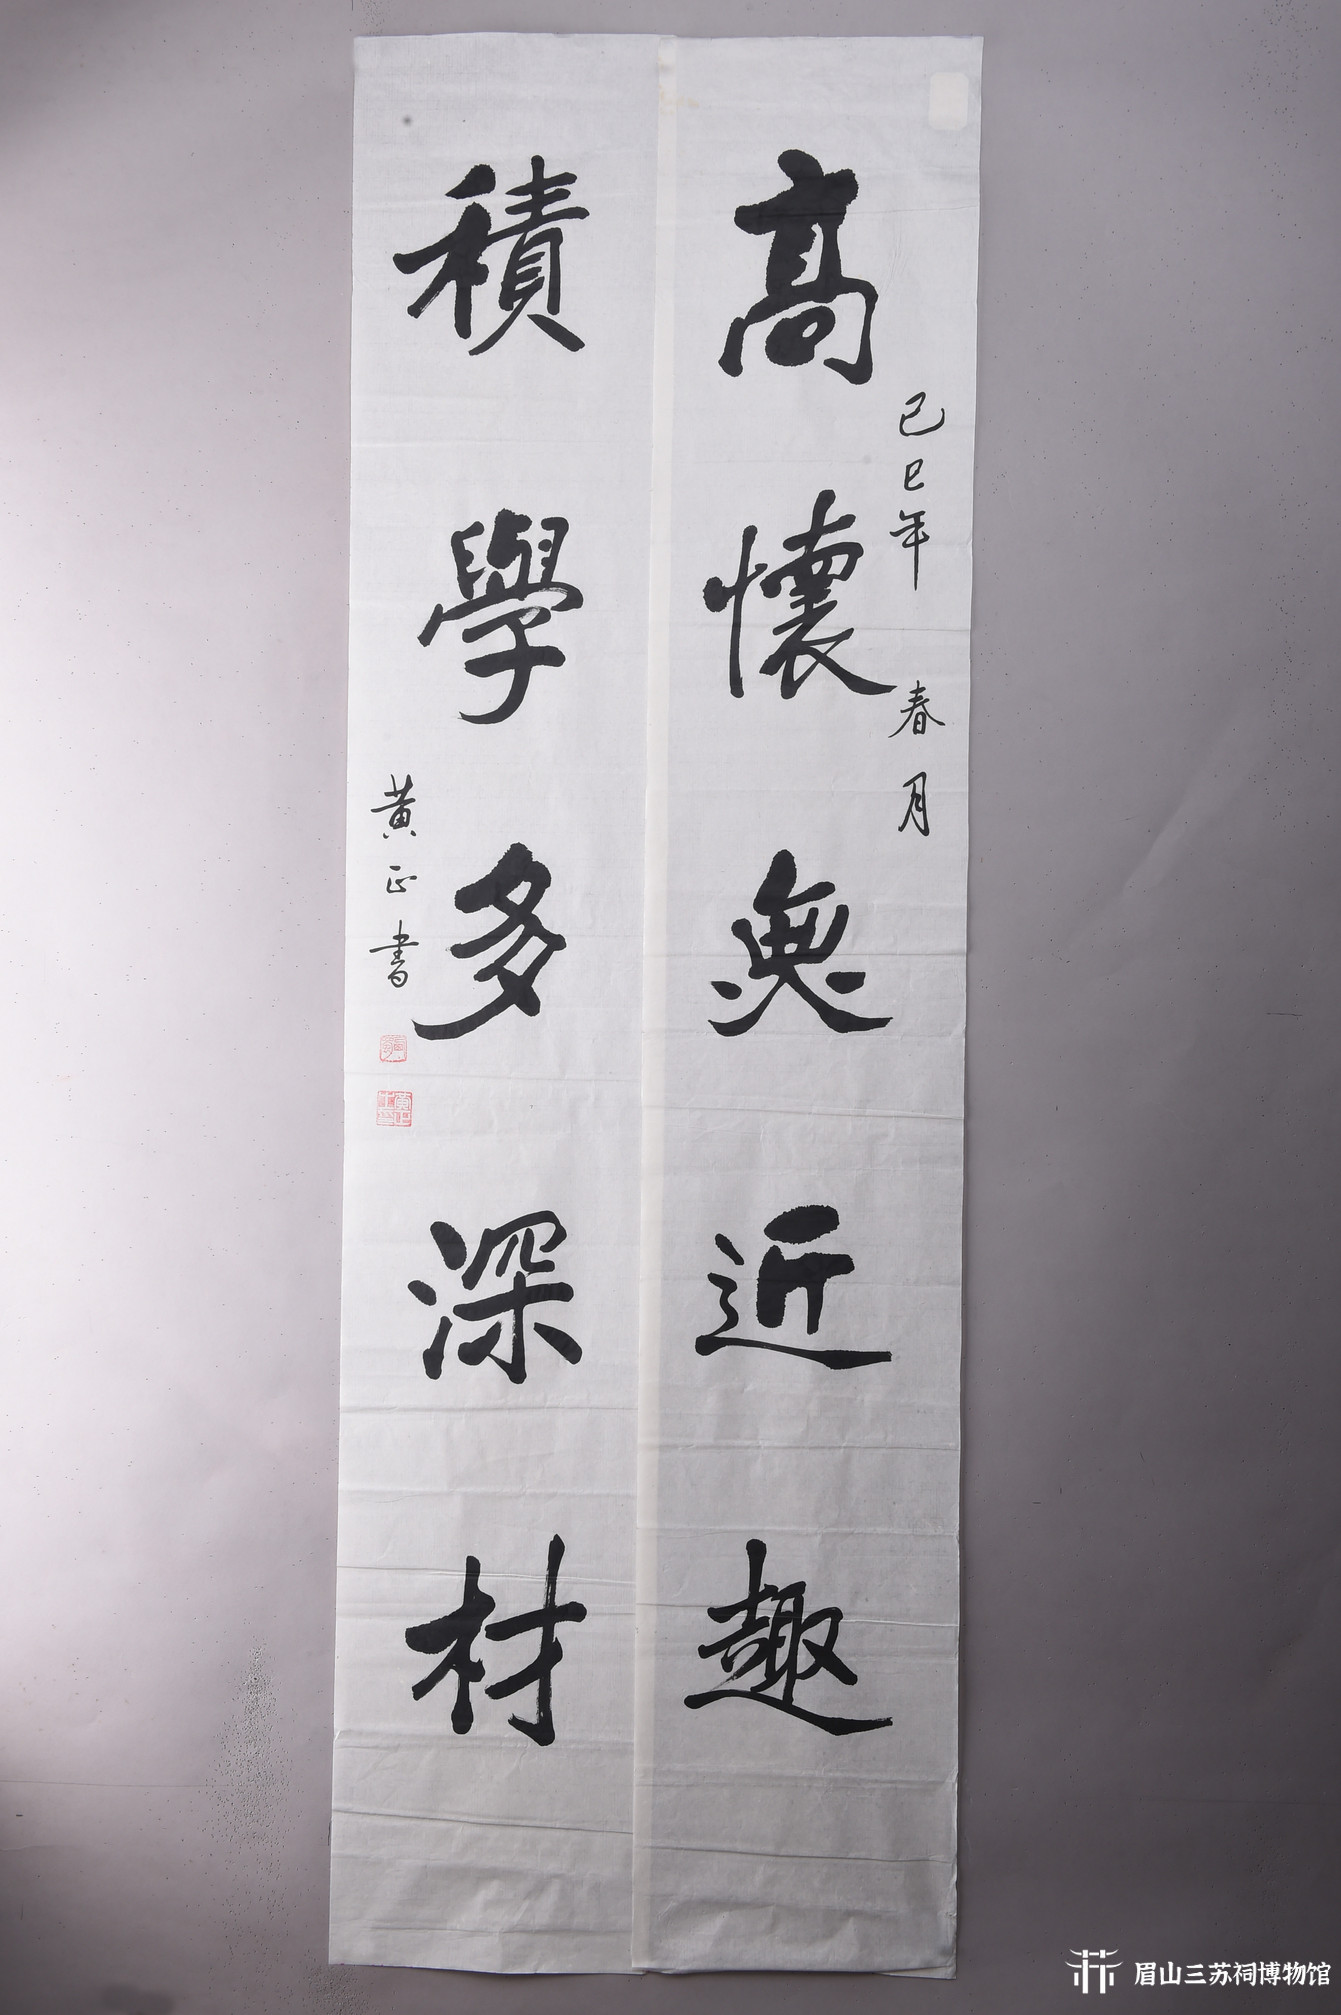 高懷無近趣
己巳年 春月
積學多深材
黄正書
眉山三苏祠博物馆